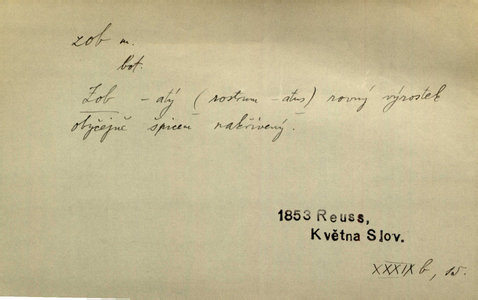 zob m.
bot.
Zob -atý (rostrum -atus) rovný výrostek
obyčejně špicem nakřivený.
1853 Reuss,
Května Slov.
XXXIX b, 15.